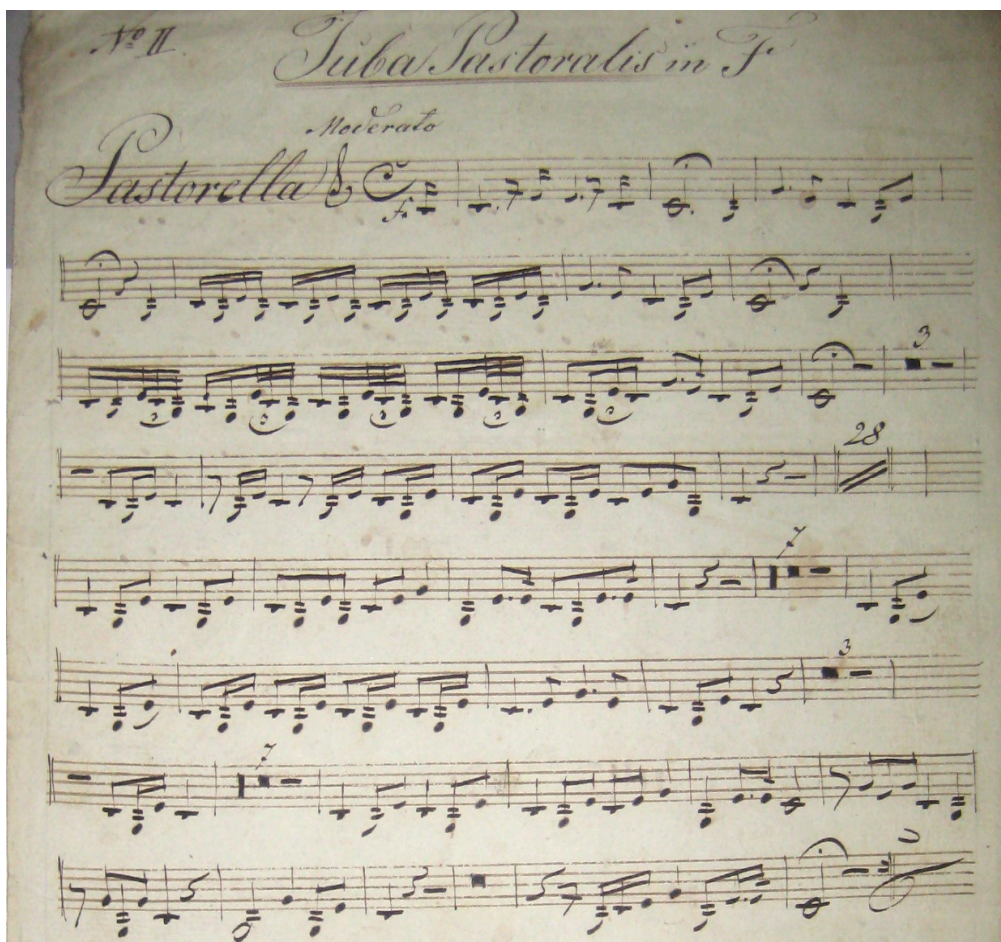 Nº II. Tuba Pastoralis in F
Moderato
Pastorella
F.
3
28
7
3
7